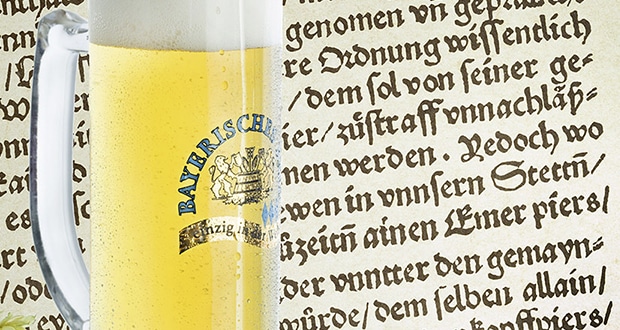 genomen vn
re Ordnung wissentlich
/dem sol von seiner ge-
ier/ zůstraff vnnachläß-
nen werden. Yedoch wo
ewen in vnnsern Stettñ/
zeitñ ainen Emer piers/
der vnntter den gemayn-
würde/ dem selben allain/
kopffpiers/
BAYERISCHE
einzig in
/ode